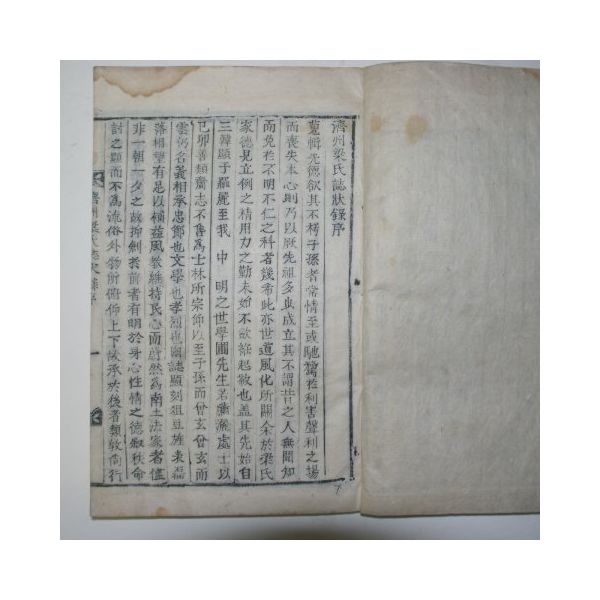 濟州梁氏誌狀錄序
蒐輯先德欲其不朽子孫者常情至或馳騖於利害聲利之場
而喪失本心則乃以厥先祖多典成立其不謂昔之人無聞知
而免於不明不仁之科者幾希此亦世道風化所關余於梁氏
家德見立例之精用力之勤未始不欲斂起敬也盖其先始自
三韓顯于羅麗至我 中明之世學圃先生若瀟灑處士以
己卯善類齎志不售爲士林所宗仰以至子孫而曾玄曾玄而
雲仍名義相承忠節也文學也孝烈也幽誌顯刻狙豆旌表磊
落相望有足以模益風敎維持民心而蔚然爲南土法家者儘
非一朝一夕之故抑制於前者有明於身心性情之德叙秩命
討之顯而不爲流俗外物所俯仰上下故承於後者類敦尙行